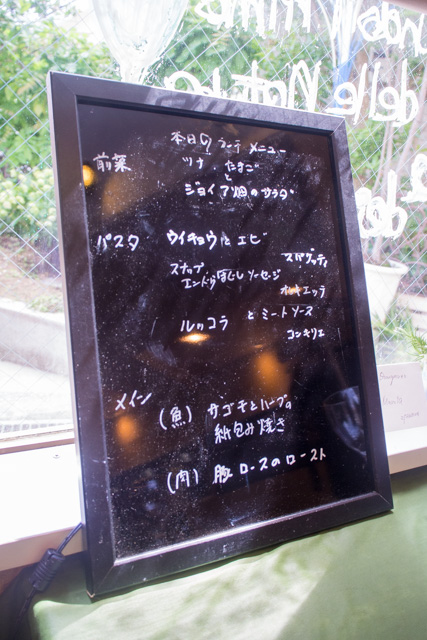 本日のランチ メニュー
前菜 ツナ、たまごと
ジョイア畑のサラダ
パスタ ウイキョウとエビ
スパゲッティ
スナップエンドウ ソーセージ
オレキエッテ
ルッコラ とミートソース
コンキリエ
メイン
(魚) サゴチとハーブの
紙包み焼き
(肉) 豚ロースのロースト
delle